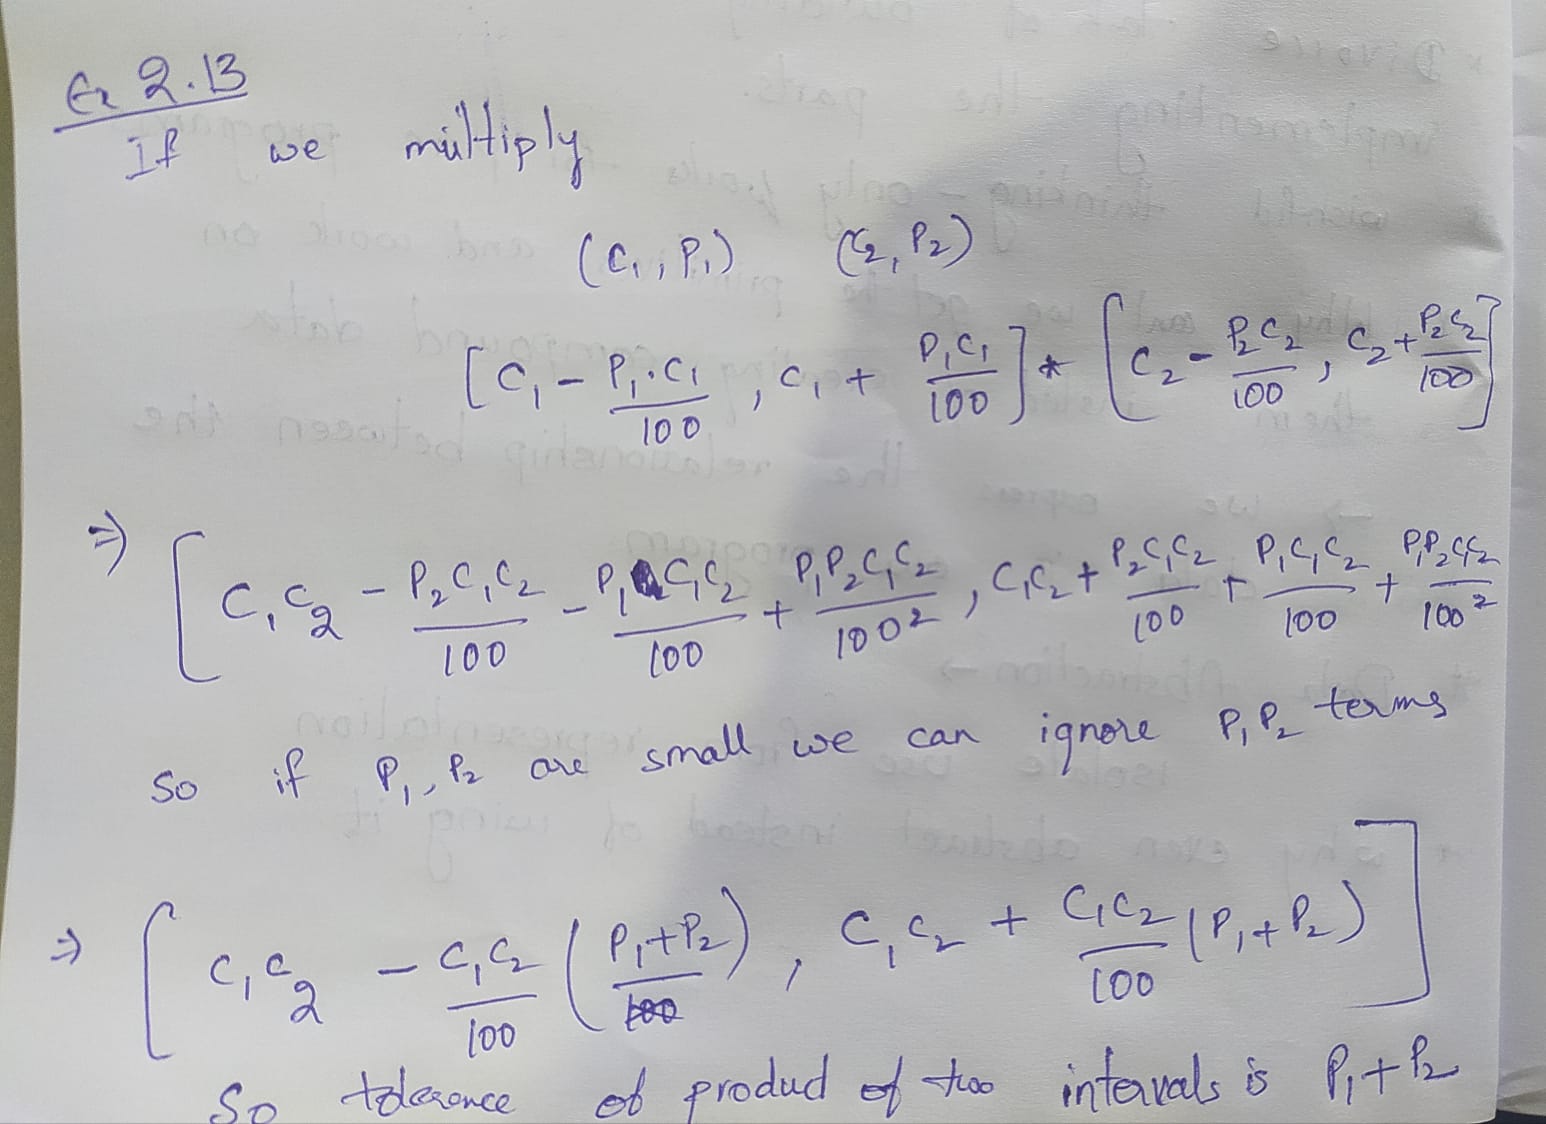 Ex 2.13
If we multiply
(C₁, P₁) (C₂, P₂)
[C₁ - P₁.C₁/100, C₁ + P₁C₁/100] * [C₂ - P₂C₂/100, C₂ + P₂C₂/100]
⇒ [C₁C₂ - P₂C₁C₂/100 - P₁C₁C₂/100 + P₁P₂C₁C₂/100², C₁C₂ + P₂C₁C₂/100 + P₁C₁C₂/100 + P₁P₂C₁C₂/100²
So if P₁, P₂ are small we can ignore P₁P₂ terms
⇒ [C₁C₂ - C₁C₂/100 (P₁+P₂), C₁C₂ + C₁C₂/100 (P₁+P₂)]
So tolerance of product of two intervals is P₁+P₂